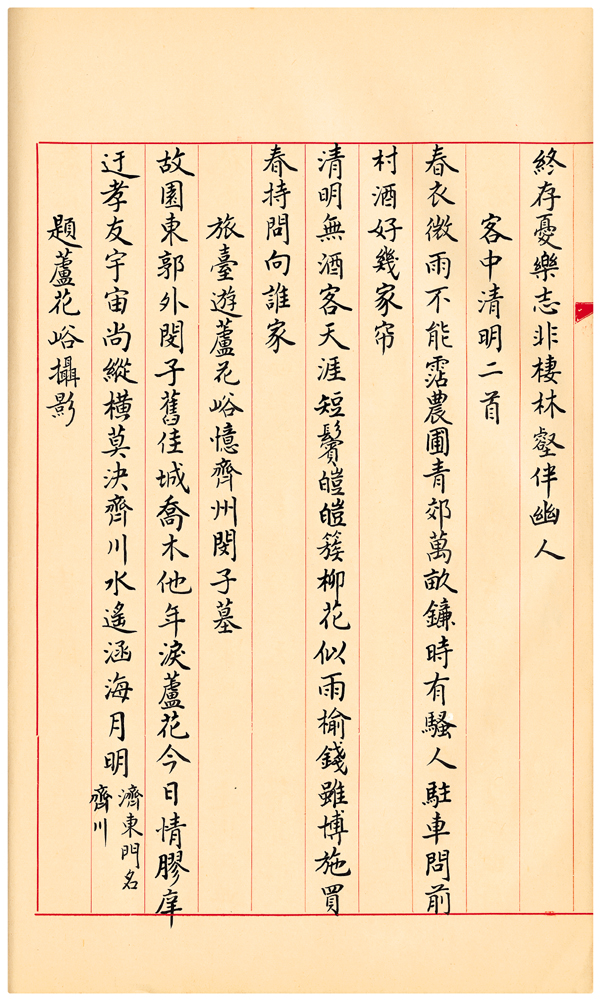 終存憂樂志非棲林壑伴幽人
客中清明二首
春衣微雨不能霑農圃青郊萬畝鐮時有騷人駐車問前
村酒好幾家帘
清明無酒客天涯短鬢皚皚簇柳花似雨榆錢雖博施買
春持問向誰家
旅臺遊蘆花峪憶齊州閔子墓
故園東郭外閔子舊佳城喬木他年淚蘆花今日情膠庠
迂孝友宇宙尚縱橫莫決齊川水遙涵海月明
濟東門名
齊川
題蘆花峪攝影